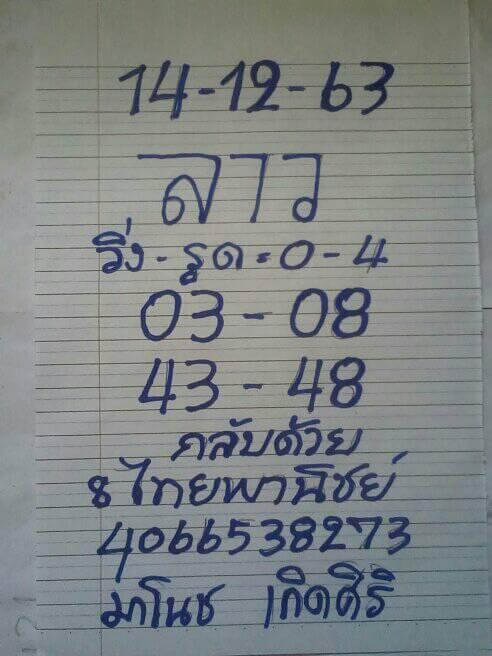 14-12-63
ลาว
วิ่ง - รูด = 0 - 4
03 - 08
43 - 48
กลับด้วย
ธ ไทยพานิชย์
4066538273
มาโนช เกิดศิริ